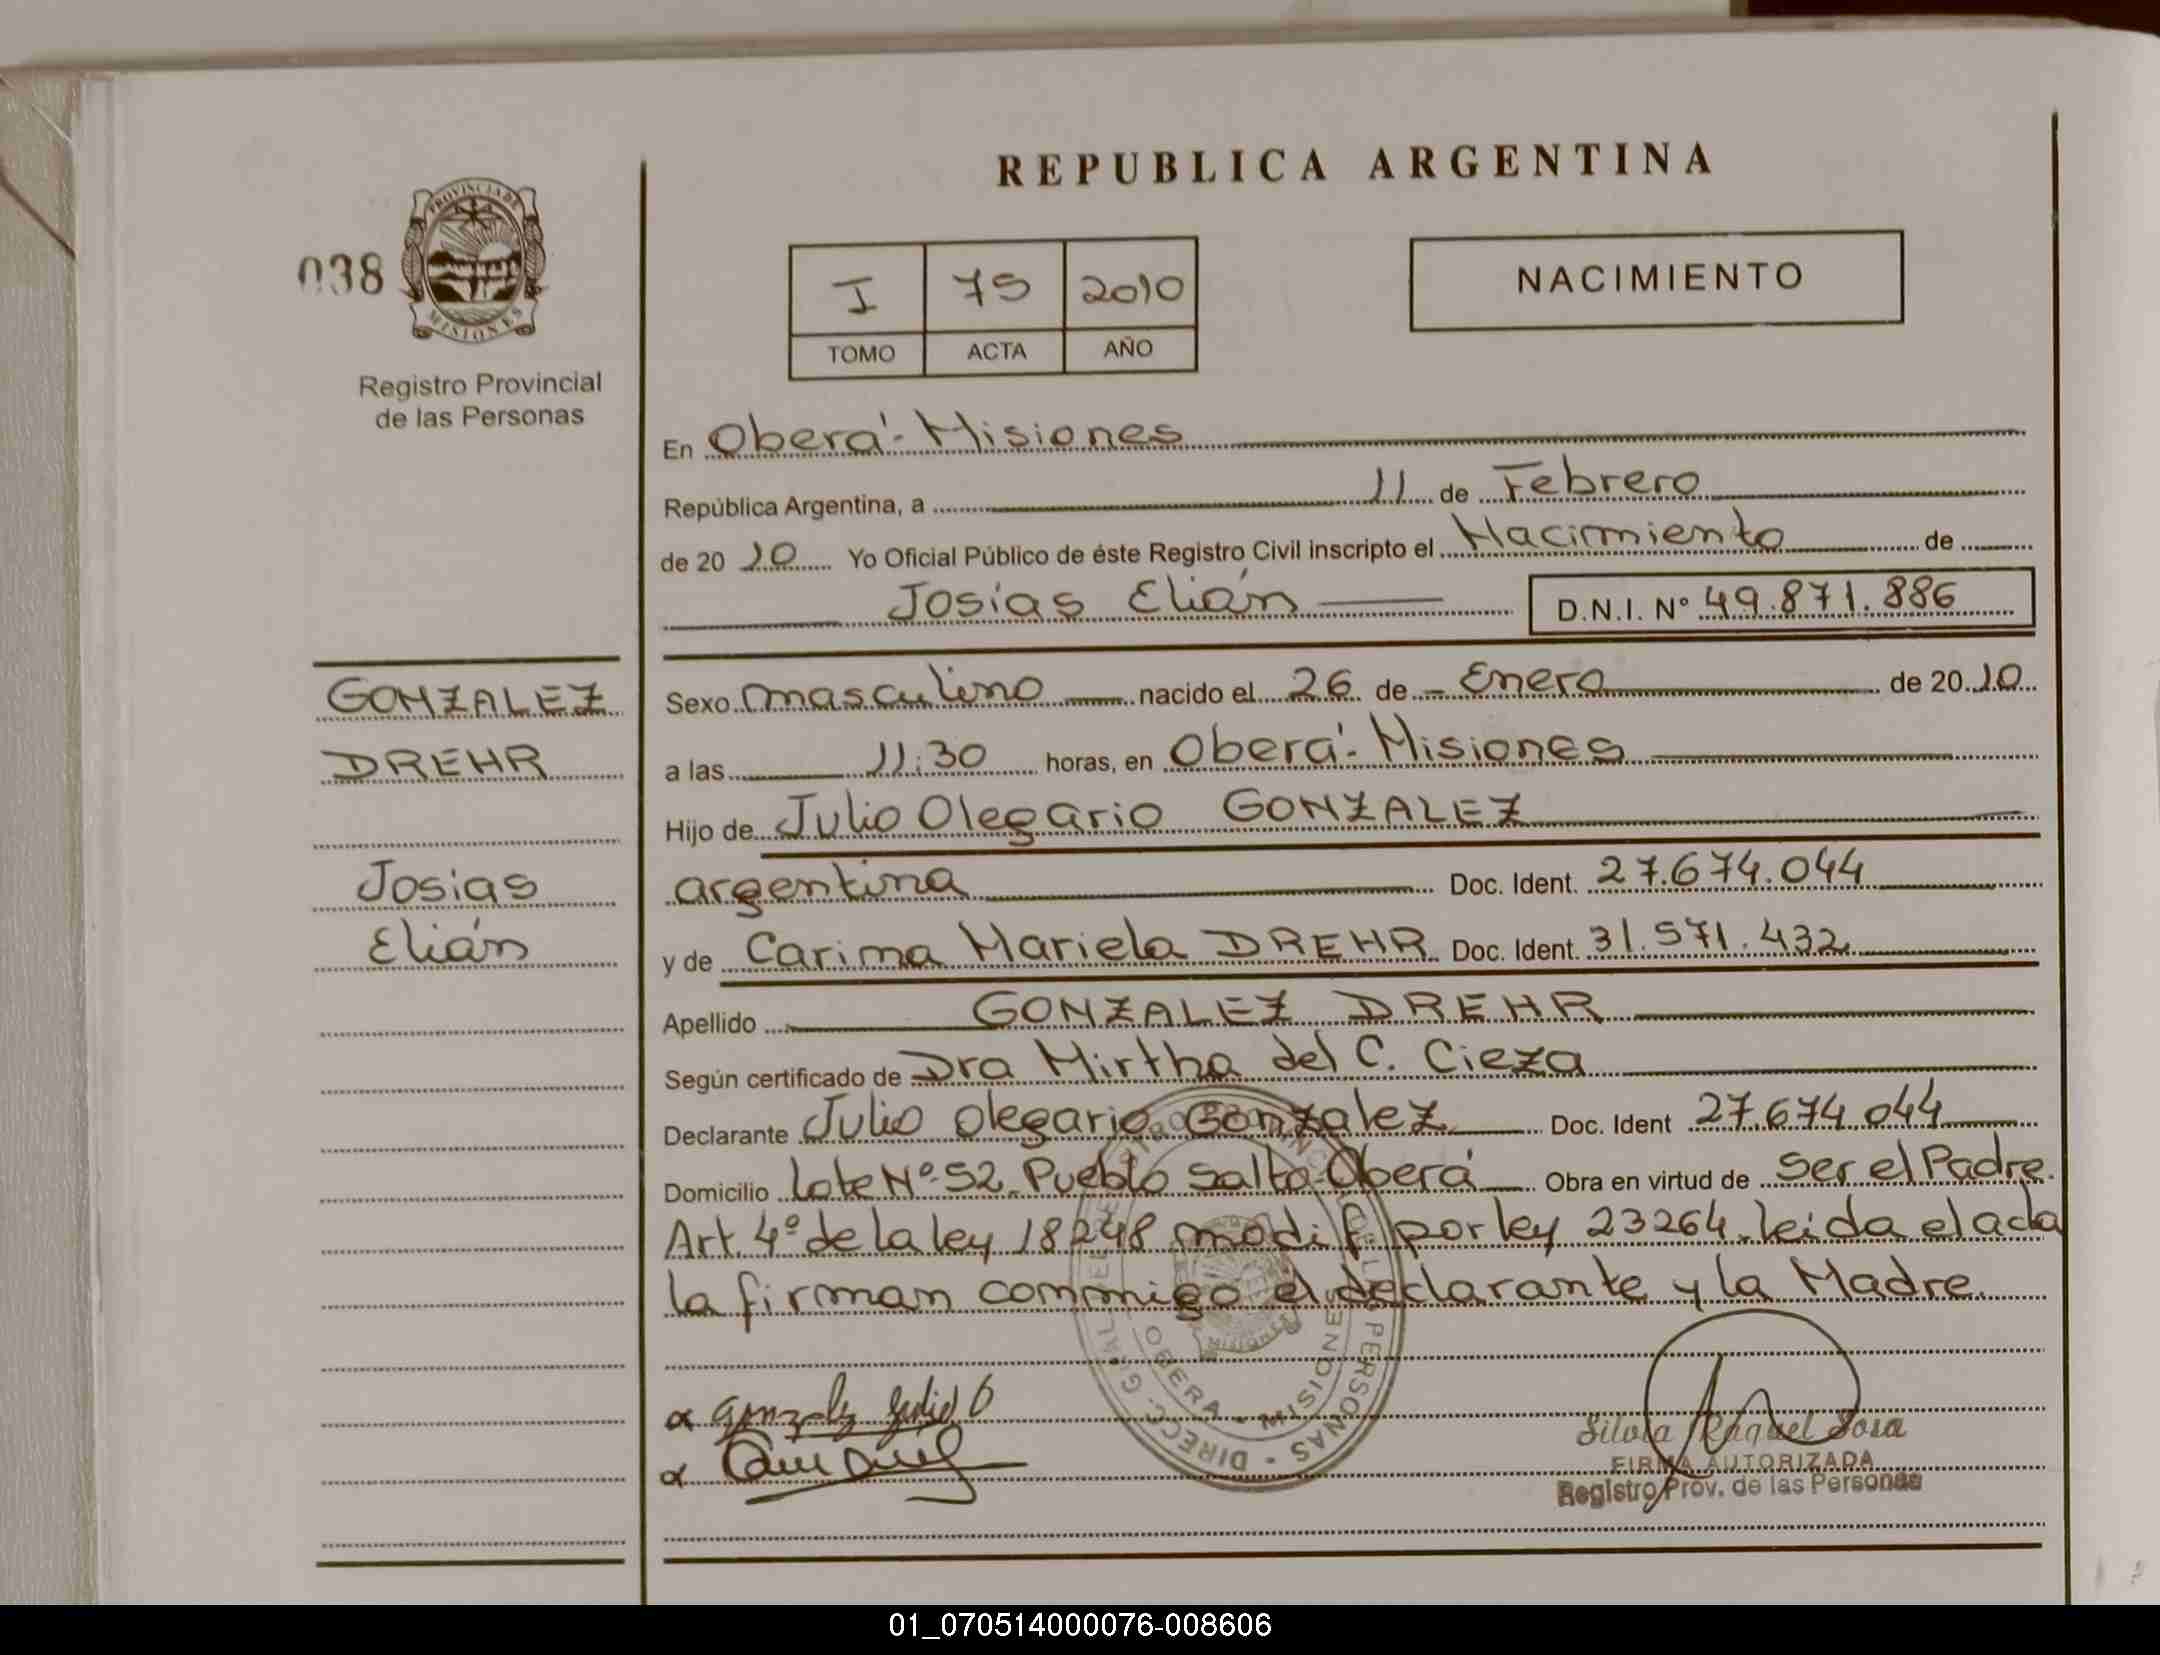 REPUBLICA ARGENTINA
038
PROVINCIA DE
MISIONES
Registro Provincial
de las Personas
I 75 2010
TOMO ACTA AÑO
NACIMIENTO
En Oberá - Misiones
República Argentina, a 11 de Febrero
de 20 10 Yo Oficial Público de éste Registro Civil inscripto el Nacimiento de
Josías Elián D.N.I. Nº 49.871.886
GONZALEZ
DREHR
Josías
Elián
Sexo masculino nacido el 26 de Enero de 20 10
a las 11:30 horas, en Oberá - Misiones
Hijo de Julio Olegario GONZALEZ
argentina Doc. Ident. 27.674.044
y de Carina Mariela DREHR Doc. Ident. 31.571.432
Apellido GONZALEZ DREHR
Según certificado de Dra Mirtha del C. Cieza
Declarante Julio Olegario Gonzalez Doc. Ident 27.674.044
Domicilio Lote Nº 52 - Pueblo Salto - Oberá Obra en virtud de Ser el Padre.
Art. 4º de la ley 18248 modif. por ley 23264. leida el acta
la firman conmigo el declarante y la Madre.
Gonzalez Julio O
OBERA - MISIONES
PERSONAS - DIRECC. GRAL. DE
Silvia Raquel Sosa
FIRMA AUTORIZADA
Registro Prov. de las Personas
01_070514000076-008606